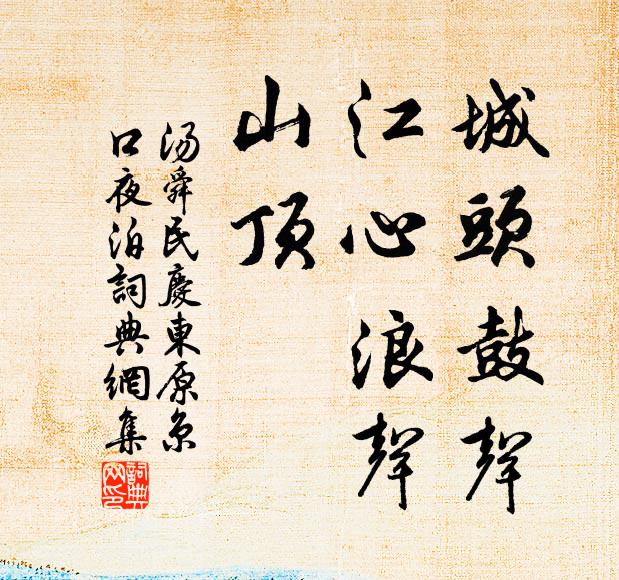 城頭鼓聲
江心浪聲
山顶
汤舜民慶東原京
口夜泊詞典網集
詞典網印